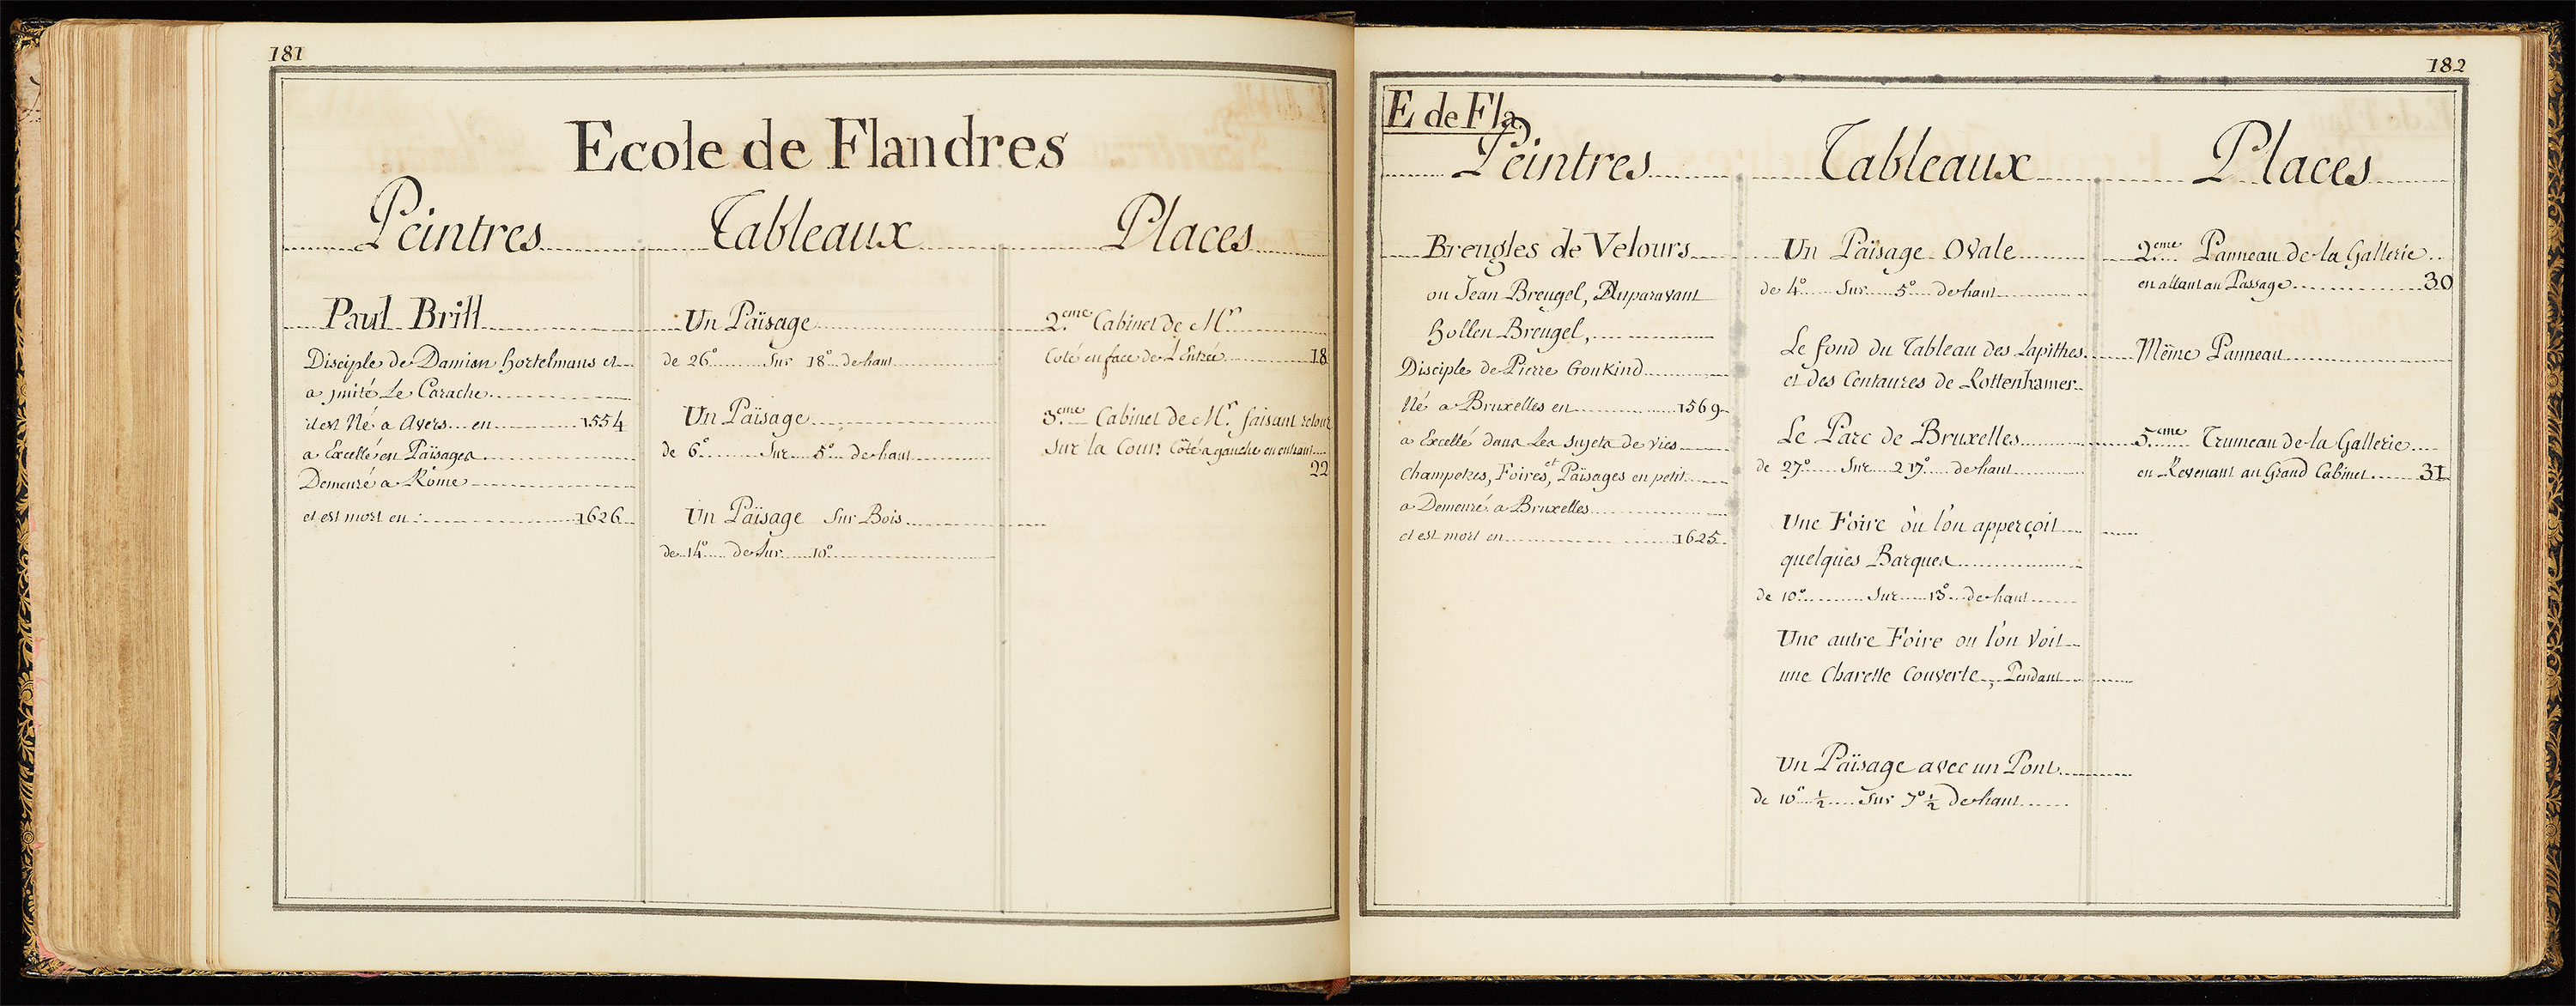 181
Ecole de Flandres
Peintres Tableaux Places
Paul Brill
Disciple de Damian hortelmans et
a jmité Le Carache
il est Né a Avers en 1554
a Excellé en Païsages
Demeuré a Rome
et est mort en : 1626
Un Païsage
de 26° Sur 18° de haut
Un Païsage
de 6° Sur 5° de haut
Un Païsage Sur Bois
de 14° de Sur 10°
2.eme Cabinet de Mr
Coté en face de L'Entrée 18
3.eme Cabinet de Mr. faisant retour
Sur la Cour: Côté a gauche en entrant
22
182
E de Fla.
Peintres Tableaux Places
Breugles de Velours
ou Jean Breugel, Auparavant
hollen Breugel,
Disciple de Pierre Goukind
Né a Bruxelles en 1569
a Excellé dans Les Sujets de vies
Champetres, Foires, et Païsages en petit
a Demeuré a Bruxelles
et est mort en 1625
Un Païsage Ovale
de 4° Sur 5° de haut
Le fond du Tableau des Lapithes
et des Centaures de Rottenhamer
Le Parc de Bruxelles
de 27° Sur 217° de haut
Une Foire òu l'on apperçoit
quelques Barques
de 10° Sur 13° de haut
Une autre Foire ou l'on Voit
une Charette Couverte, Pendant
Un Païsage avec un Pont
de 10° ½ Sur 7° ½ De haut
2.eme Panneau de la Gallerie
en allant au Passage 30
Même Panneau
5.eme Trumeau de la Gallerie
en Revenant au Grand Cabinet 31